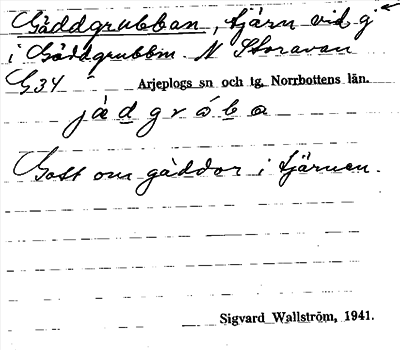 Gäddgrubban, tjärn vid g
i Gäddgrubbm. N Storavan
G34 Arjeplogs sn och tg, Norrbottens län.
j ä d g r ó b a
Gott om gäddor i tjärnen.
Sigvard Wallström, 1941.